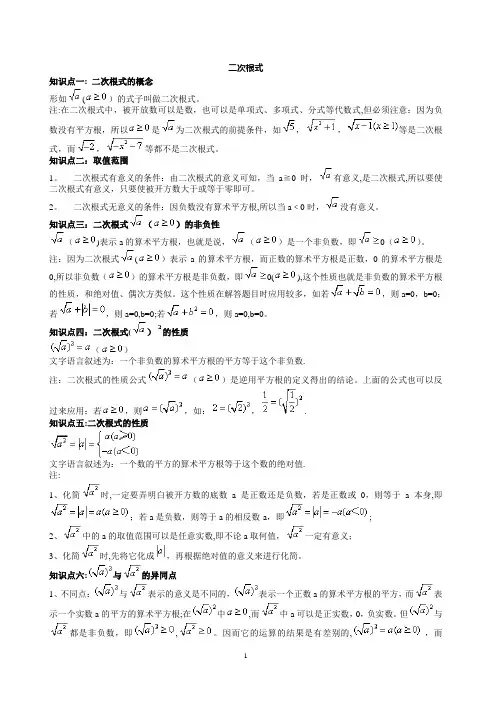 二次根式
知识点一: 二次根式的概念
形如√a(a≥0)的式子叫做二次根式。
注:在二次根式中，被开放数可以是数，也可以是单项式、多项式、分式等代数式,但必须注意：因为负
数没有平方根，所以a≥0是√a为二次根式的前提条件，如√5，√(x²+1)，√(x-1)(x≥1)等是二次根
式，而√-2，√(-x²-7)等都不是二次根式。
知识点二：取值范围
1。 二次根式有意义的条件：由二次根式的意义可知，当 a≧0 时，√a有意义,是二次根式,所以要使
二次根式有意义，只要使被开方数大于或等于零即可。
2。 二次根式无意义的条件：因负数没有算术平方根,所以当 a﹤0 时，√a没有意义。
知识点三：二次根式√a（a≥0）的非负性
√a（a≥0)表示 a 的算术平方根，也就是说，√a（a≥0）是一个非负数，即√a≥0（a≥0）。
注：因为二次根式√a(a≥0）表示 a 的算术平方根，而正数的算术平方根是正数，0 的算术平方根是
0,所以非负数（a≥0）的算术平方根是非负数，即√a≥0(a≥0),这个性质也就是非负数的算术平方根
的性质，和绝对值、偶次方类似。这个性质在解答题目时应用较多，如若√a+√b=0，则 a=0，b=0；
若√a+|b|=0，则 a=0,b=0;若√a+b²=0，则 a=0,b=0。
知识点四：二次根式(√a)²的性质
(√a)²=a（a≥0）
文字语言叙述为：一个非负数的算术平方根的平方等于这个非负数.
注：二次根式的性质公式(√a)²=a（a≥0）是逆用平方根的定义得出的结论。上面的公式也可以反
过来应用：若a≥0，则a=(√a)²，如：2=(√2)²，1/2=(√(1/2))².
知识点五:二次根式的性质
√a²=|a|={a(a≥0) -a(a<0)
文字语言叙述为：一个数的平方的算术平方根等于这个数的绝对值.
注:
1、化简√a²时,一定要弄明白被开方数的底数 a 是正数还是负数，若是正数或 0，则等于 a 本身,即
√a²=|a|=a(a≥0)；若 a 是负数，则等于 a 的相反数 a，即√a²=|a|=-a(a<0);
2、√a²中的 a 的取值范围可以是任意实数,即不论 a 取何值，√a²一定有意义；
3、化简√a²时,先将它化成|a|，再根据绝对值的意义来进行化简。
知识点六:(√a)²与√a²的异同点
1、不同点：(√a)²与√a²表示的意义是不同的，(√a)²表示一个正数 a 的算术平方根的平方，而√a²表
示一个实数 a 的平方的算术平方根;在(√a)²中a≥0,而√a²中 a 可以是正实数，0，负实数。但(√a)²与
√a²都是非负数，即(√a)²≥0,√a²≥0。因而它的运算的结果是有差别的,(√a)²=a(a≥0)，而
1